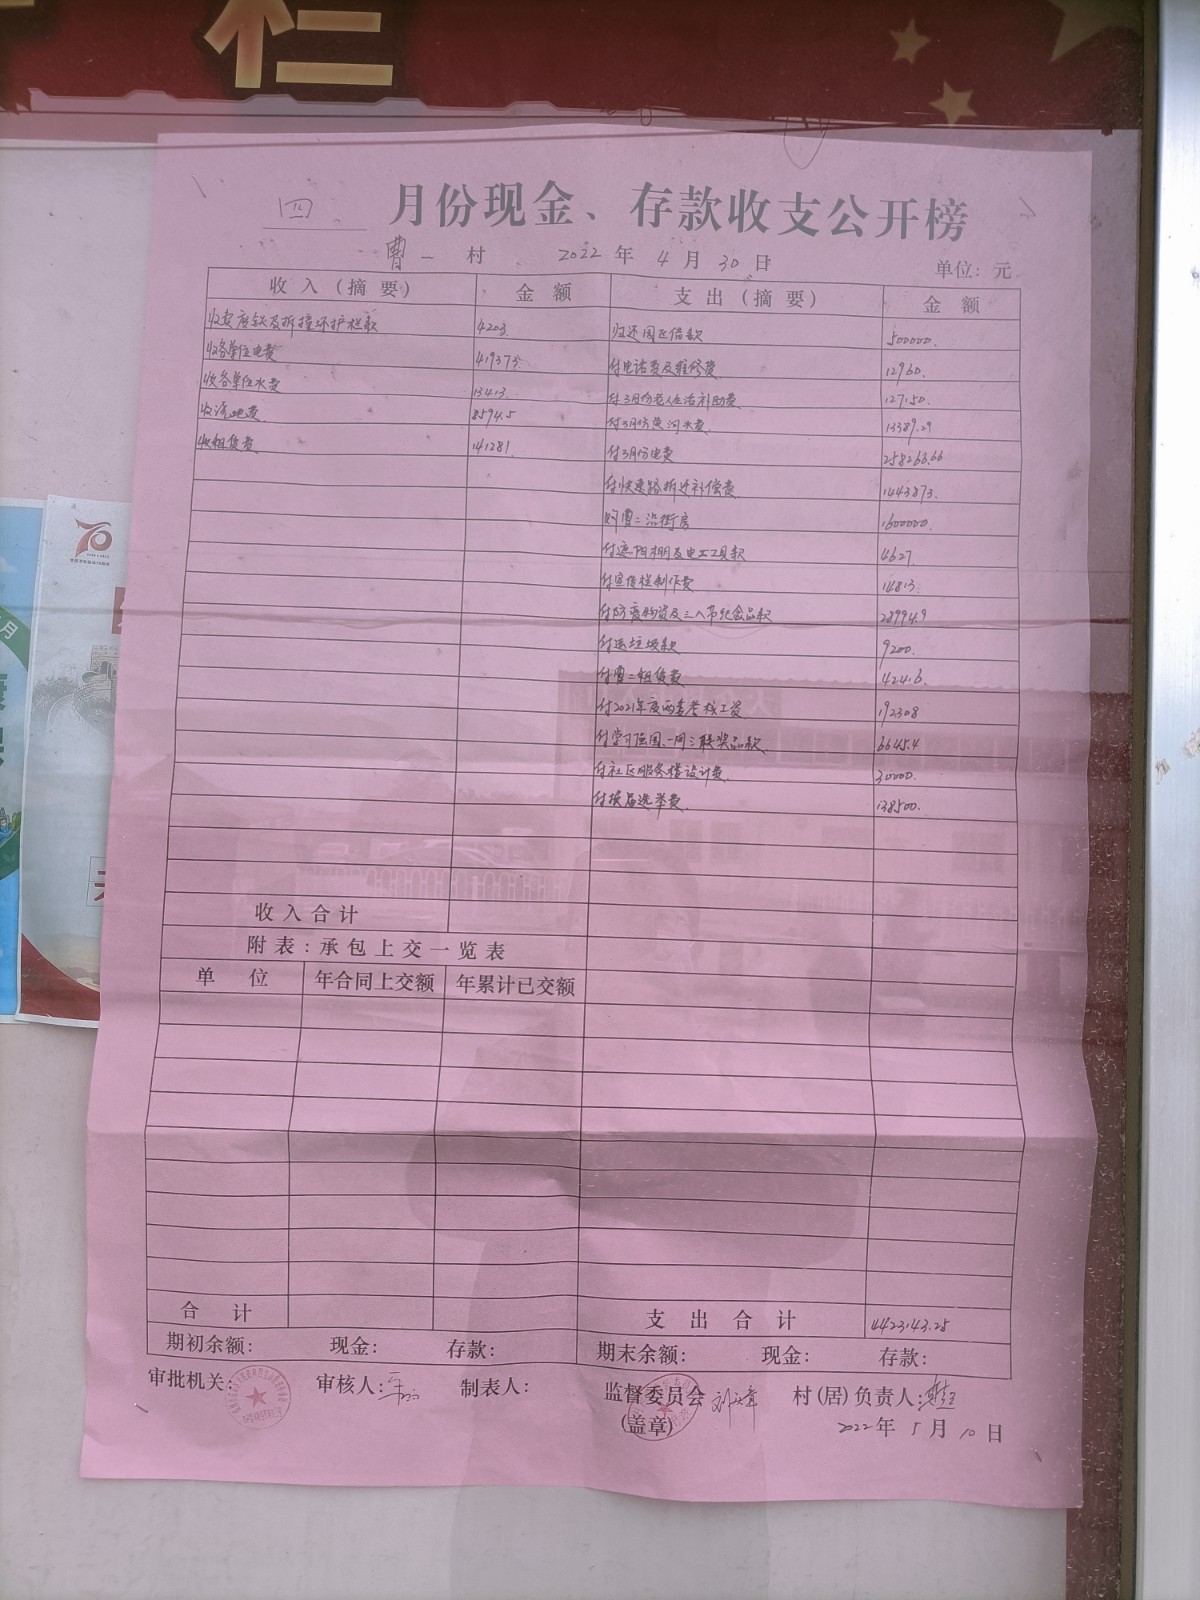 栏
四 月份现金、存款收支公开榜
曹一 村 2022 年 4 月 30 日 单位：元
收入（摘要） 金额 支出（摘要） 金额
收卖废铁及拆撞坏护栏款 4203 归还园区借款 500000.
收各单位电费 419373. 付电话费及维修费 12960.
收各单位水费 13413. 付3月份老人生活补助费 127150.
8594.5 付3月份黄河水费 13389.29
收租赁费 141281. 付3月份电费 258266.66
付快速路拆迁补偿费 1443873.
购曹二沿街房 1600000.
付遮阳棚及电工工具款 4627.
付宣传栏制作费 14813.
付防疫物资及三八节纪念品款 28994.9
付运垃圾款 9200.
付曹二租赁费 42416.
付2021年度两委考核工资 192308
付学习强国、一问三联奖品款 6645.4
付社区服务楼设计费 30000.
付换届选举费 138500.
收入合计
附表：承包上交一览表
单位 年合同上交额 年累计已交额
合计 支出合计 4423143.25
期初余额： 现金： 存款： 期末余额： 现金： 存款：
审批机关： 审核人： 制表人： 监督委员会 村(居)负责人：
(盖章) 2022 年 5 月 10 日
70